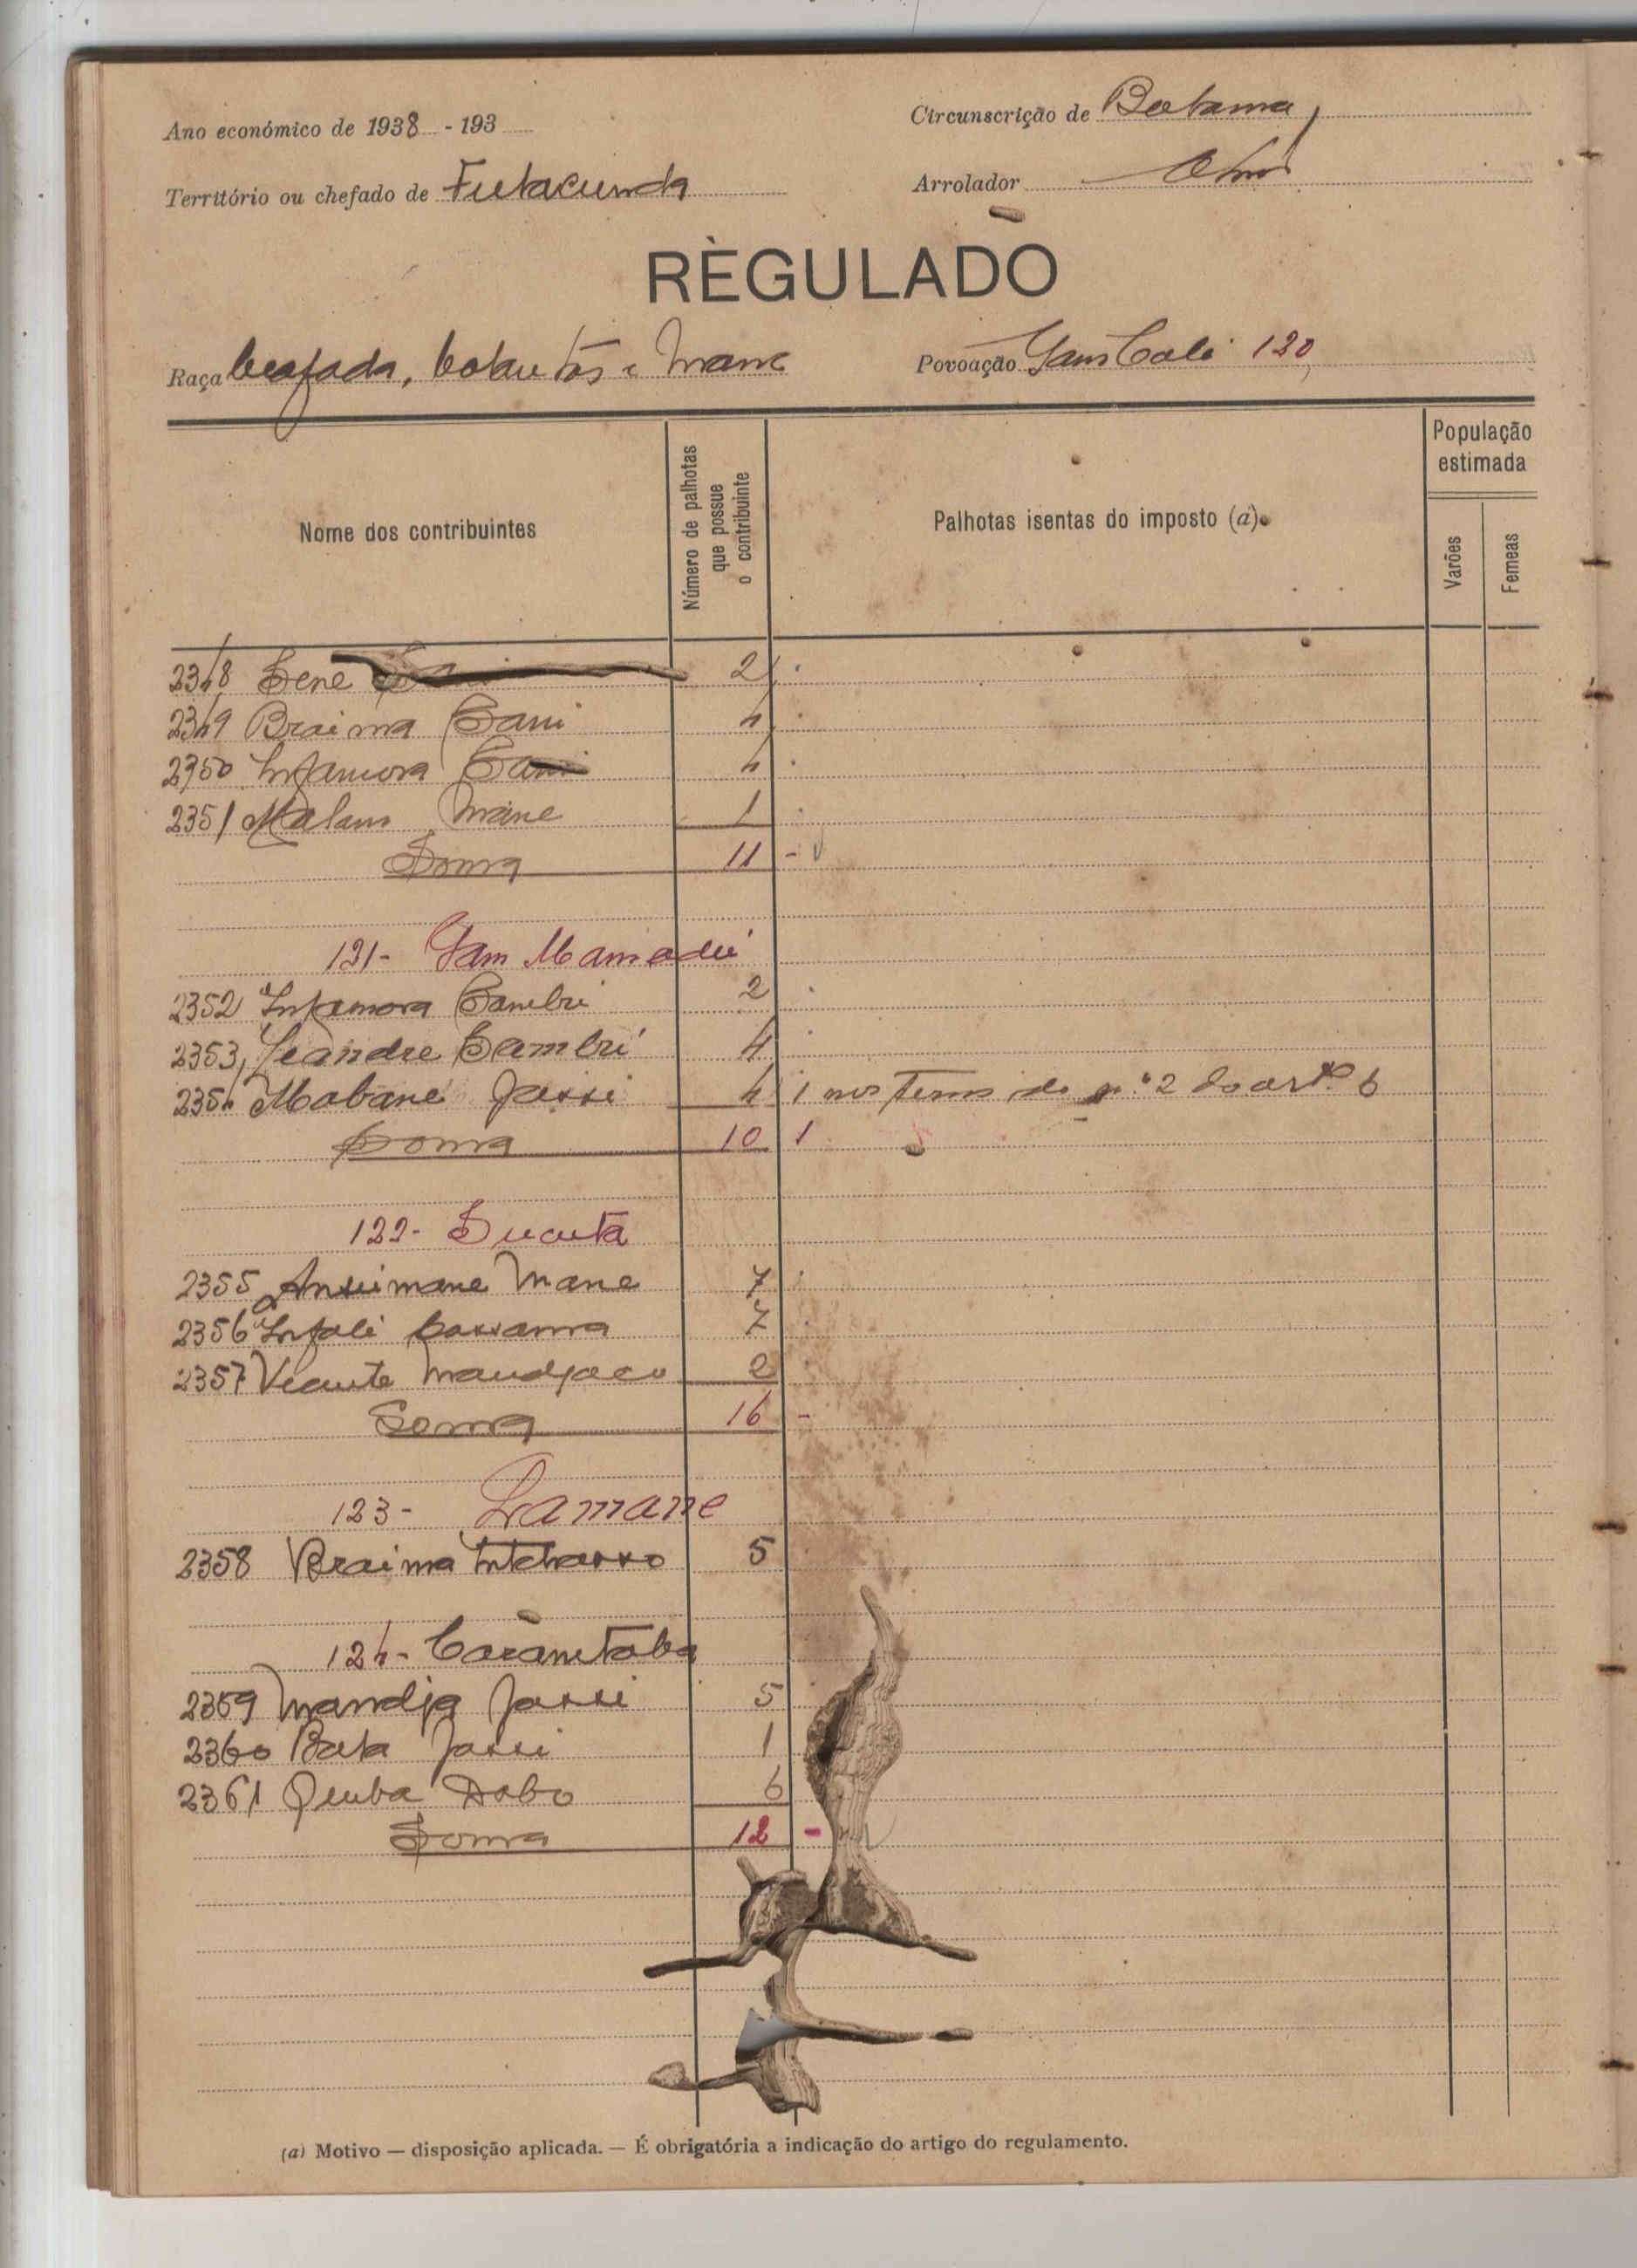 Ano económico de 1938 - 193
Circunscrição de Bolama
Território ou chefado de Fulacunda
Arrolador
RÈGULADO
Raça beafada, balantas e mane
Povoação Gam Cali 120
Nome dos contribuintes
Número de palhotas que possue o contribuinte
Palhotas isentas do imposto (a)
População estimada
Varões
Femeas
2348 Sene 2
2349 Braima Cani 4
2350 Infamora 4
2351 Malam Mane 1
Soma 11 -
121- Gam Mamadú
2352 Infamora Cambri 2
2353 Leandre Cambri 4
2354 Mabane Jassi 4 1 nos termos do n.º 2 do artº 6
Soma 10 1
122- Sucuta
2355 Ansumane Mane 7
2356 Infali Cassama 7
2357 Vicente Mandjaco 2
Soma 16 -
123- Lamane
2358 Braima Intchasso 5
124- Carantaba
2359 Mandja Jassi 5
2360 Bata Jassi 1
2361 Quuba Dabo 6
Soma 12 -
(a) Motivo — disposição aplicada. — É obrigatória a indicação do artigo do regulamento.